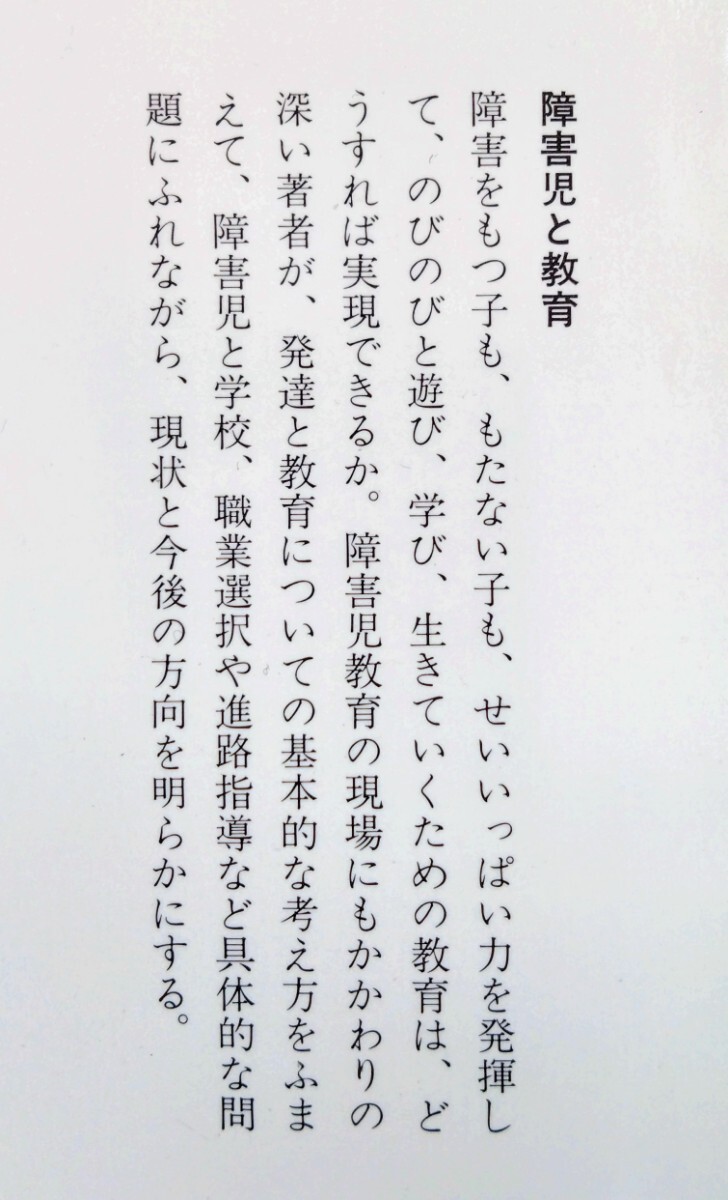 障害児と教育
障害をもつ子も、もたない子も、せいいっぱい力を発揮し
て、のびのびと遊び、学び、生きていくための教育は、ど
うすれば実現できるか。障害児教育の現場にもかかわりの
深い著者が、発達と教育についての基本的な考え方をふま
えて、障害児と学校、職業選択や進路指導など具体的な問
題にふれながら、現状と今後の方向を明らかにする。